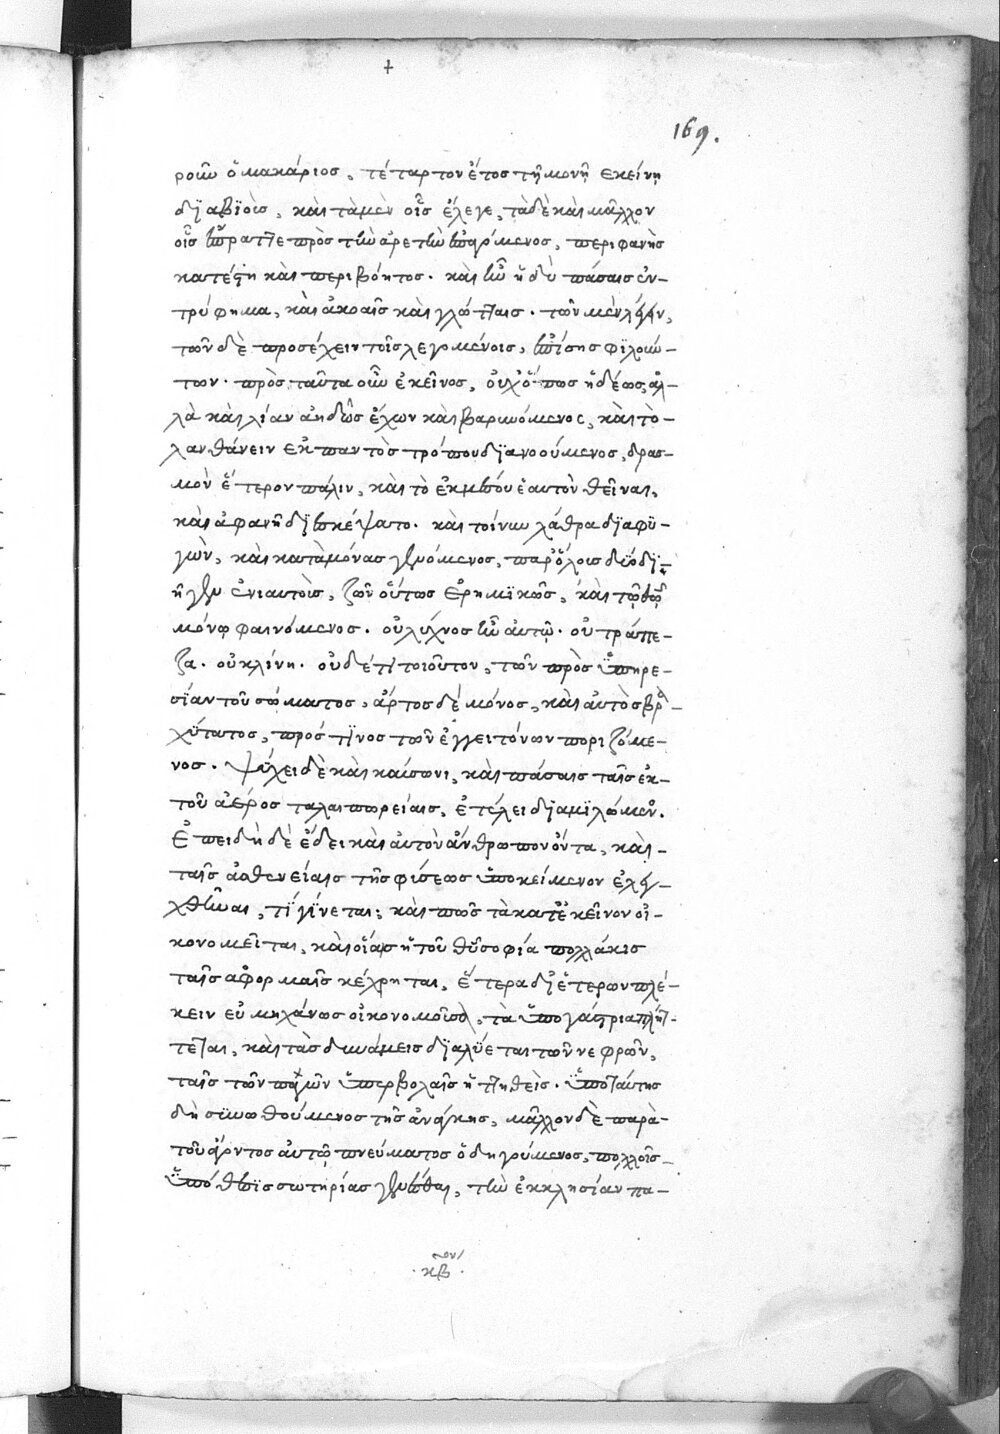 +
169.
ροων ὁ μακάριος, τέταρτον ἔτος τῇ μονῇ ἐκείνῃ
διαβιοὺς, καὶ τὰ μὲν οἷς ἔλεγε, τὰ δὲ καὶ μᾶλλον
οἷς ἔπραττε πρὸς τὴν ἀρετὴν ἐπαγόμενος, περιφανὴς
κατέστη καὶ περιβόητος. καὶ ἦν ἡδὺ πάσαις ἐν-
τρύφημα, καὶ ἀκοαῖς καὶ γλώτταις. τῶν μὲν λέγειν,
τῶν δὲ προσέχειν τοῖς λεγομένοις, ἐπίσης φιλούν-
των. πρὸς ταῦτα οὖν ἐκεῖνος, οὐχ ὅπως ἡδέως, ἀλ-
λὰ καὶ λίαν ἀηδῶς ἔχων καὶ βαρυνόμενος, καὶ τὸ
λανθάνειν ἐκ παντὸς τρόπου διανοούμενος, δρασ-
μὸν ἕτερον πάλιν, καὶ τὸ ἐκμέσου ἑαυτὸν θεῖναι,
καὶ ἀφανῆ διεσκέψατο. καὶ τοίνυν λάθρα διαφυ-
γὼν, καὶ κατὰ μόνας γενόμενος, παρ' ὅλοις δυσὶ δι-
ῆγεν ἐνιαυτοῖς, ζῶν οὕτως ἐρημικῶς, καὶ τῷ θεῷ
μόνῳ φαινόμενος. οὐ λύχνος ἦν αὐτῷ. οὐ τράπε-
ζα. οὐ κλίνη. οὐδέ τι τοιοῦτον, τῶν πρὸς ὑπηρε-
σίαν τοῦ σώματος, ἄρτος δὲ μόνος, καὶ αὐτὸς βρα-
χύτατος, πρός τινος τῶν ἐγγειτόνων ποριζόμε-
νος. ψύχει δὲ καὶ καύσωνι, καὶ πάσαις ταῖς ἐκ
τοῦ ἀέρος ταλαιπωρείαις, ἐτέλει διαμιλώμενος.
Ἐπειδὴ δὲ ἔδει καὶ αὐτὸν ἄνθρωπον ὄντα, καὶ
ταῖς ἀσθενείαις τῆς φύσεως ὑποκείμενον ἐλεγ-
χθῆναι, τί γίνεται; καὶ πῶς τὰ κατ' ἐκεῖνον οἰ-
κονομεῖται, καὶ οἵαις ἡ τοῦ θεοῦ σοφία πολλάκις
ταῖς ἀφορμαῖς κέχρηται, ἕτερα δι' ἑτέρων πλέ-
κειν εὐμηχάνως οἰκονομοῦσα, τὰ ὑπογάστρια πλήτ-
τεται, καὶ τὰς δυνάμεις διαλύεται τῶν νεφρῶν,
ταῖς τῶν πάγων ὑπερβολαῖς ἡττηθείς. ὑπὸ ταύτης
δὴ συνωθούμενος τῆς ἀνάγκης, μᾶλλον δὲ παρὰ
τοῦ ἄγοντος αὐτῷ πνεύματος ὁδηγούμενος, πολλοῖς
ὑπόθεσις σωτηρίας γενέσθαι, τὴν ἐκκλησίαν πα-
κβον